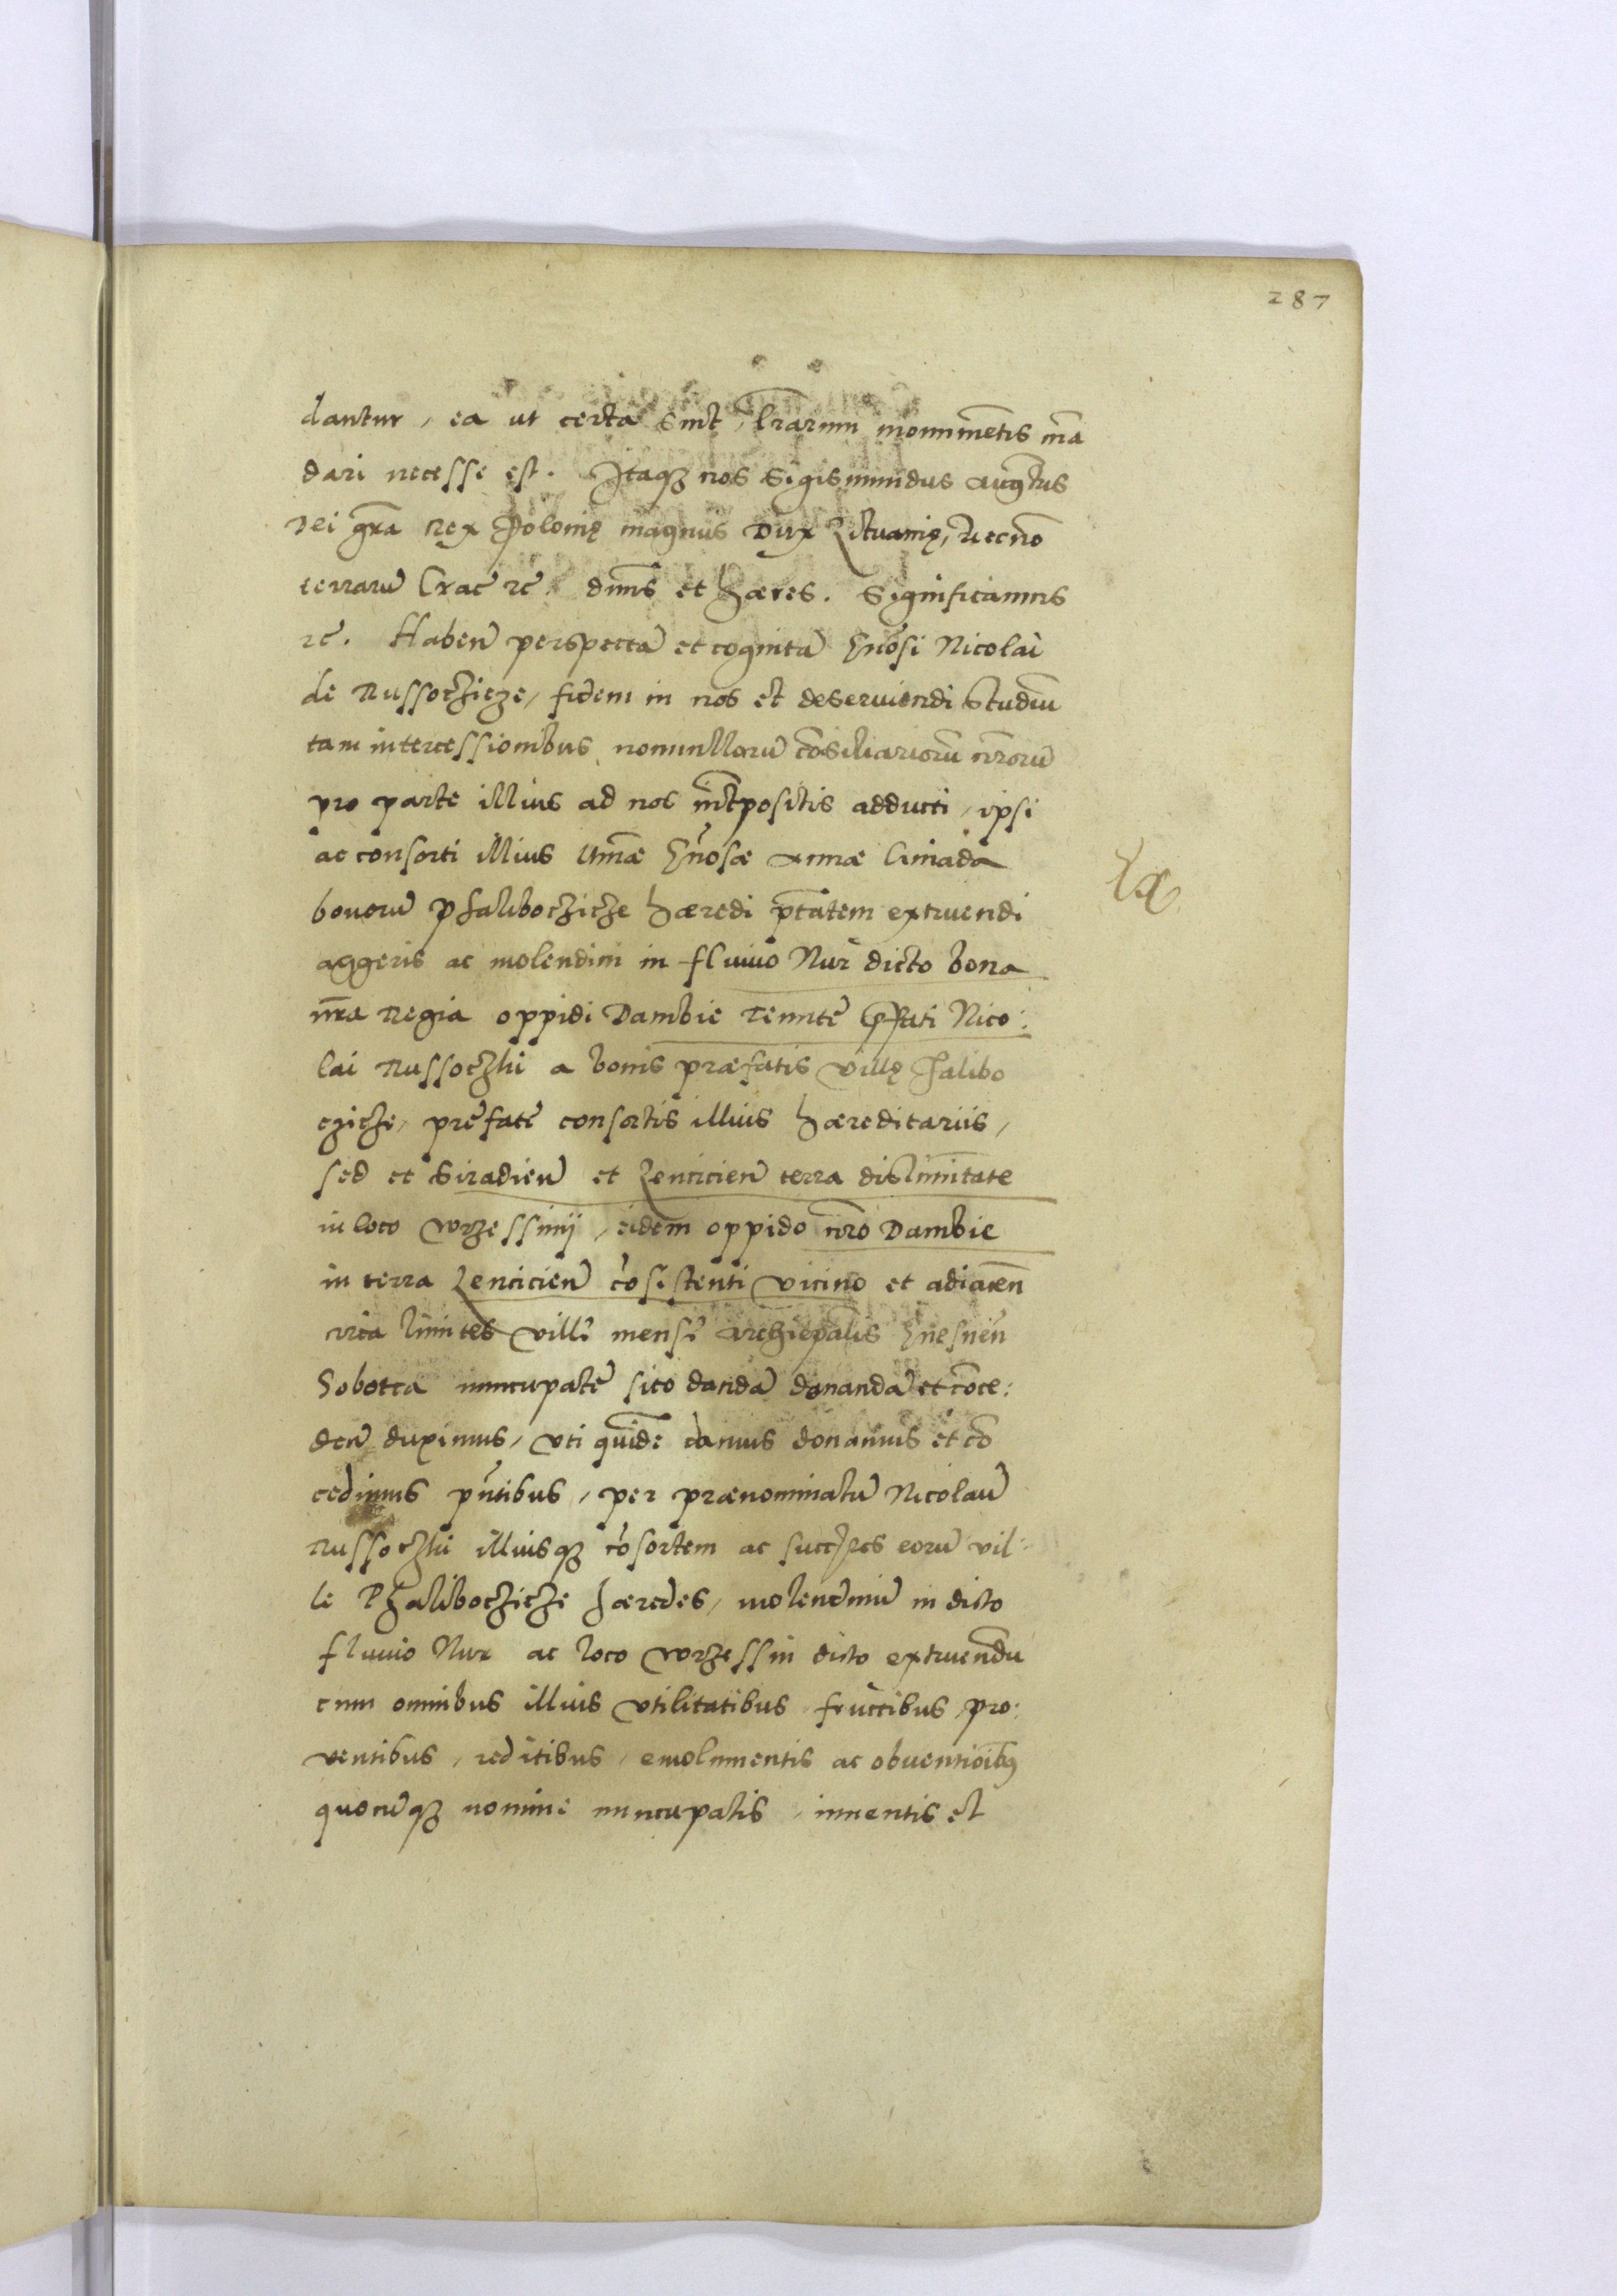 287
dantur, ea ut certa sint, lrarum monumetis ma
dari necesse est. Itaq3 nos Sigismundus Augtus
Dei gra Rex Polonię magnus Dux Lituanię, Necno
terraru Crac rc. dnus et hæres. Significamus
rc. Haben perspecta et cognita Gnosi Nicolai
de Russoczicze, fidem in nos et deserviendi studiu
tam intercessionibus nonnulloru cosiliarioru nroru
pro parte illius ad nos intpositis adducti, ipsi
ac consorti illius Gnosæ Annæ
bonoru Phaliboczicze hæredi ptatem extruendi
aggeris ac molendini in fluvio Nur dicto bona
nra Regia oppidi Dambie Nico:
lai Russoczki a bonis præfatis villę Phalibo
czicze, prefate consortis illius hæreditariis,
sed et Siradien et Lencicien terra dislimitate
in loco Vorzessinij, eidem oppido nro Dambie
in terra Lencicien cosistenti vicino et adiacen
circa limites ville mense Archiepalis Gnesnen
Sobotca nuncupate sito danda donanda et coce:
den duximus, vti quide damus donamus et co
cedimus pntibus, per prænominatu Nicolau
Russoczki illiusq3 cosortem ac succres eoru vil:
le Phaliboczicze hæredes, molendinu in dicto
fluvio Nur ac loco Vorzessin dicto extruendu
cum omnibus illius vtilitatibus fructibus, pro:
ventibus, reditibus, emolumentis ac obventioib9
quocuq3 nomine nuncupatis, inventis et